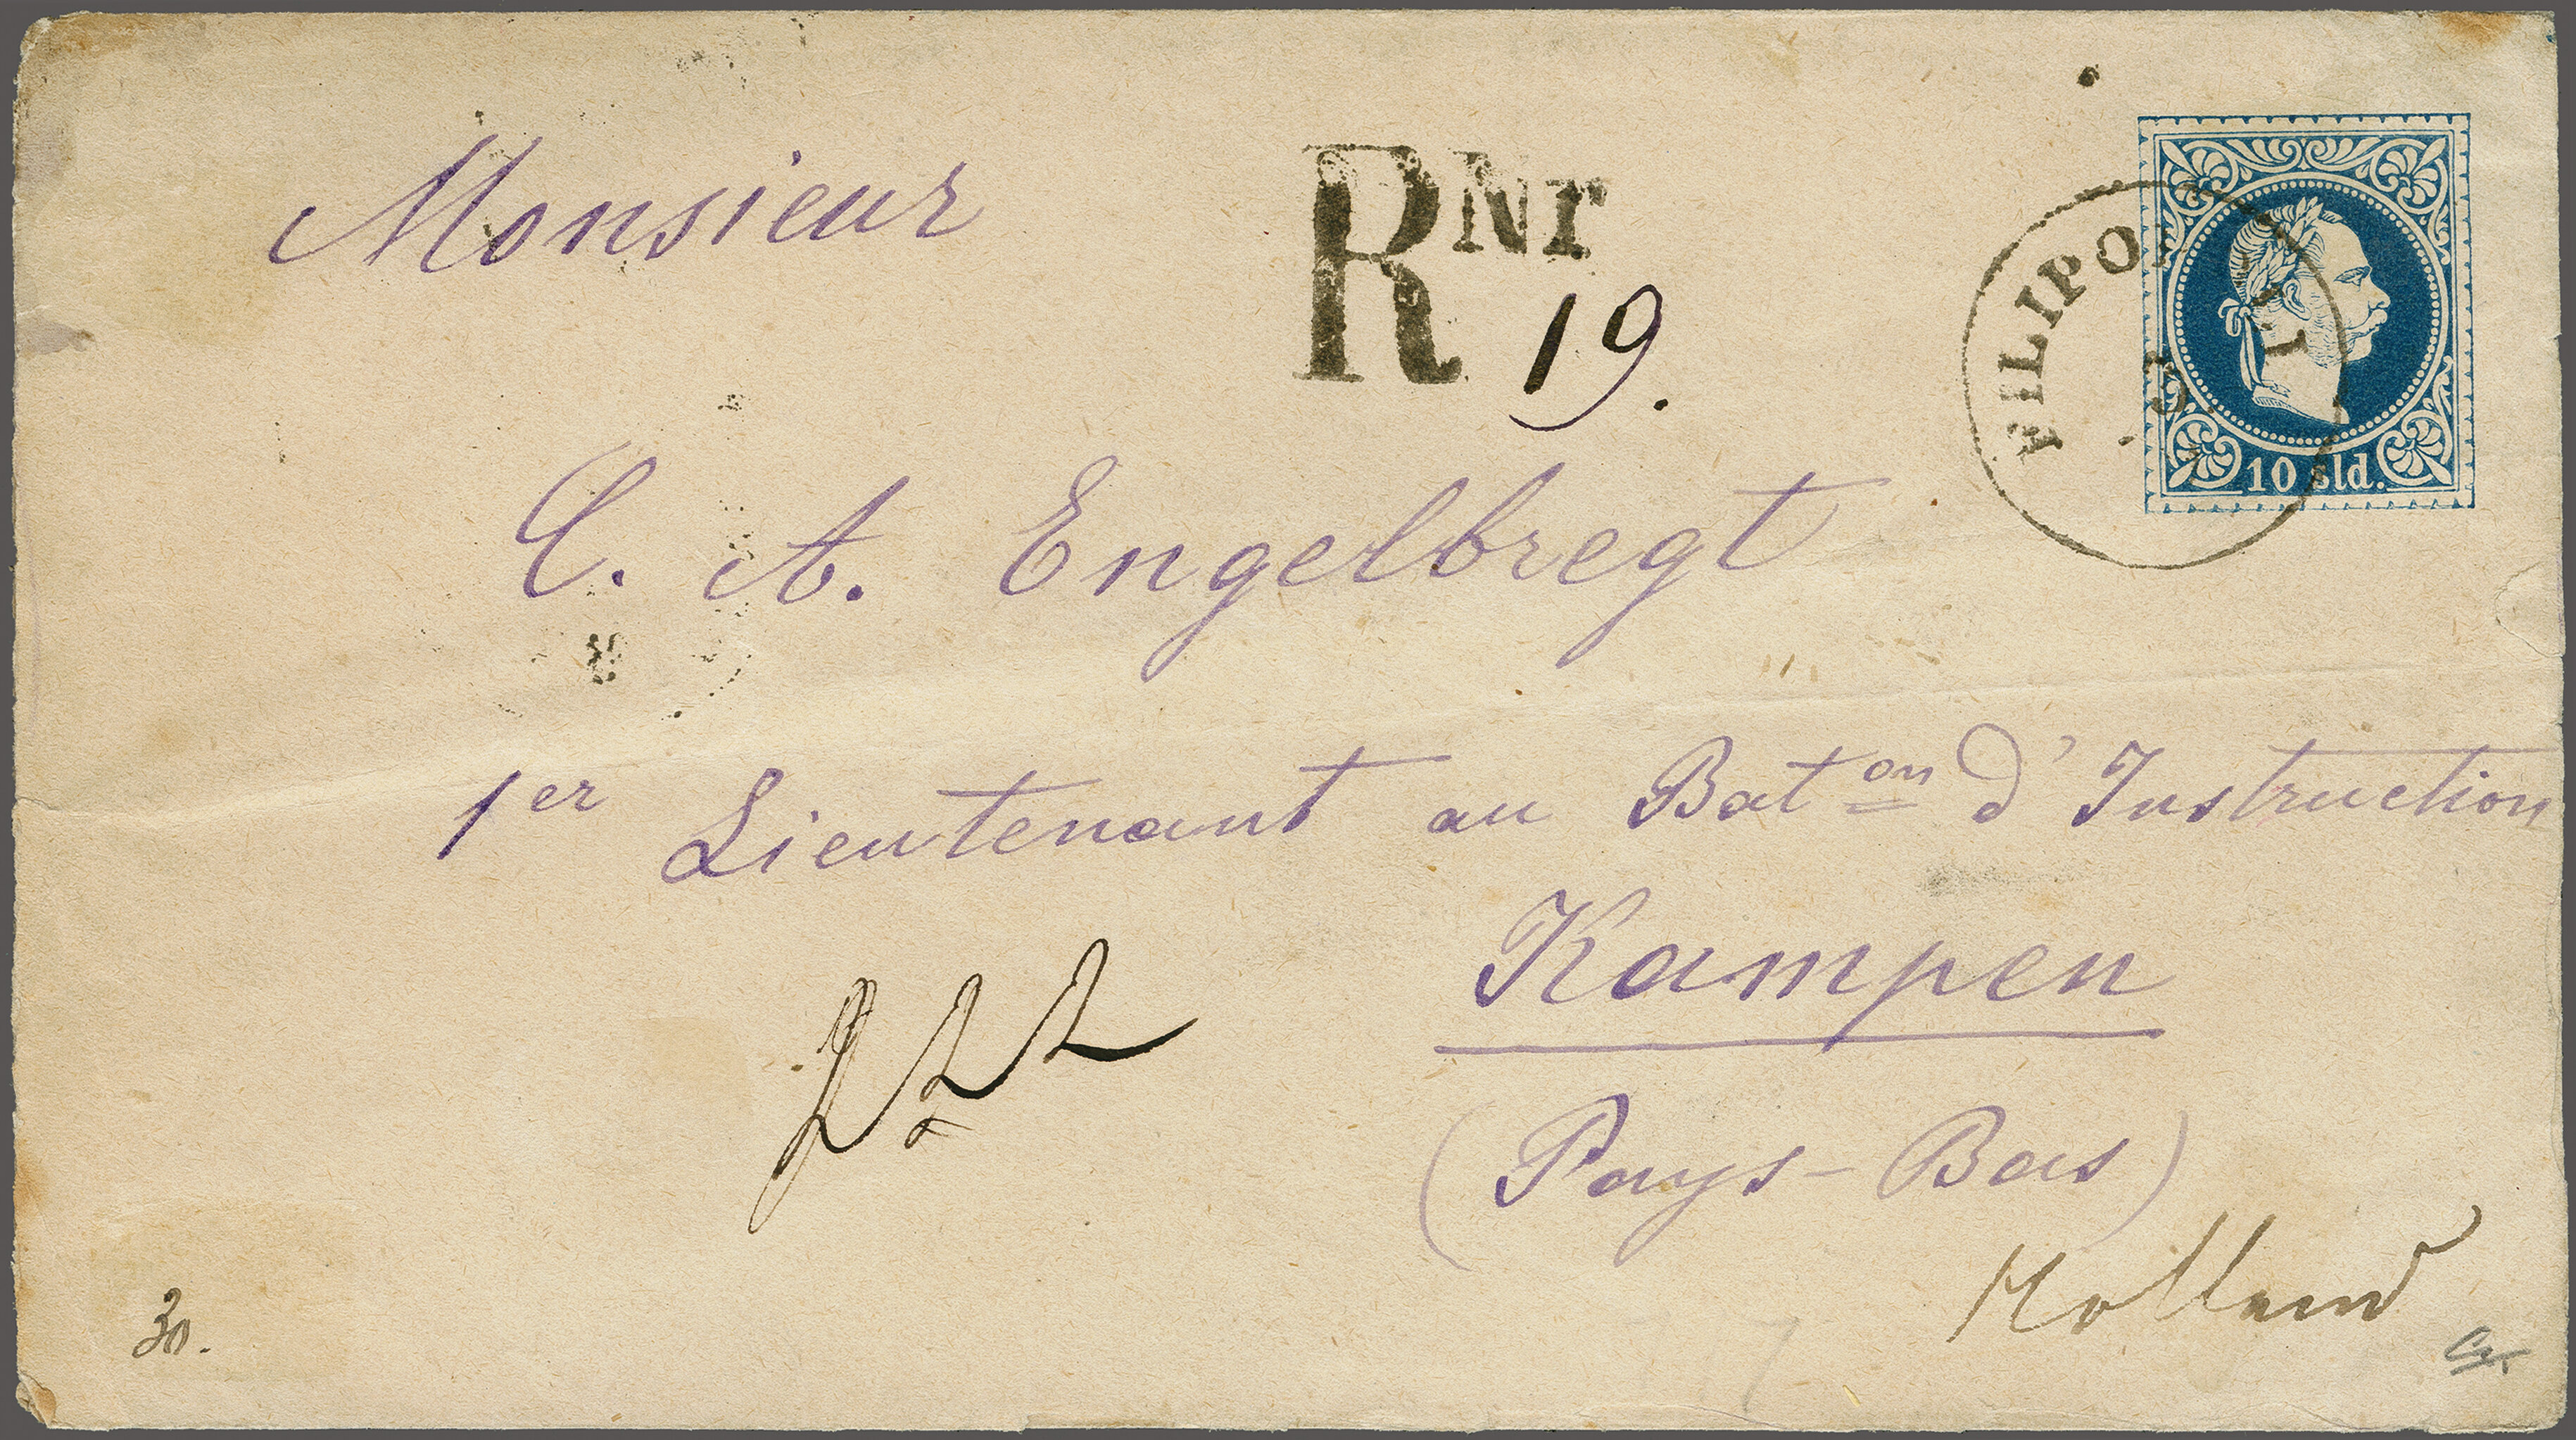 Monsieur
R Nr
19.
FILIPO
10 sld.
C. A. Engelbregt
1er Lieutenant au Baton d'Instruction
Kampen
(Pays-Bas)
Holland
30.